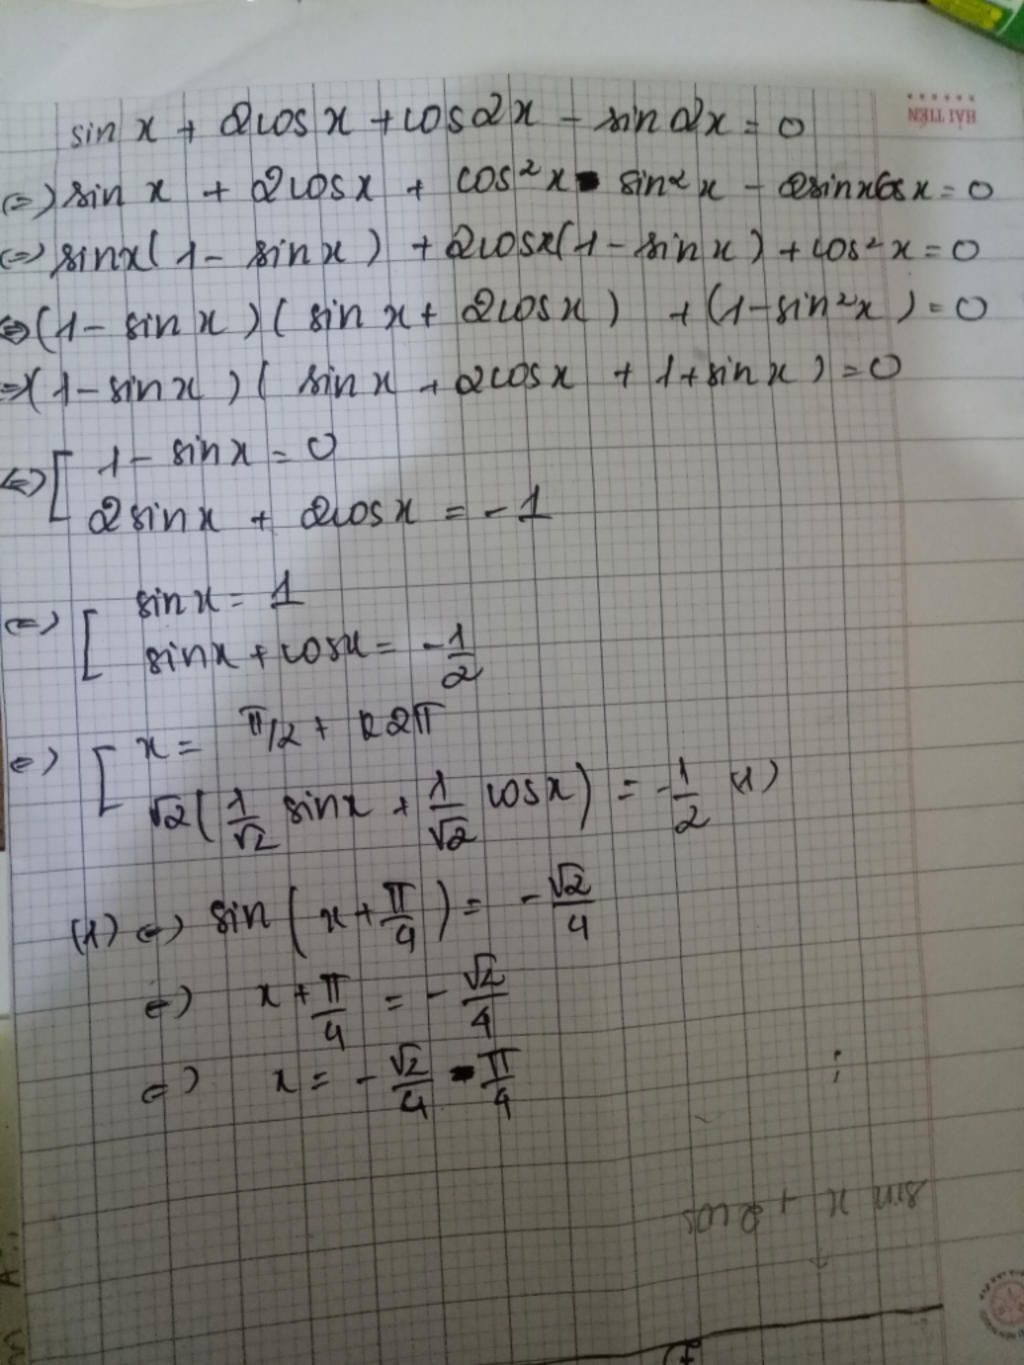 HẢI TIẾN
sin x + 2cos x + cos2x - sin 2x = 0
(=) sin x + 2cosx + cos²x - sin²x - 2sinxcosx = 0
(=) sinx(1 - sinx) + 2cosx(1 - sinx) + cos²x = 0
(=) (1 - sinx)(sinx + 2cosx) + (1 - sin²x) = 0
=) (1 - sinx)(sinx + 2cosx + 1 + sinx) = 0
(=) [ 1 - sinx = 0
2sinx + 2cosx = -1
(=) [ sinx = 1
sinx + cosx = -1/2
(=) [ x = π/2 + k2π
√2(1/√2 sinx + 1/√2 cosx) = -1/2 (1)
(1) (=) sin(x + π/4) = -√2/4
(=) x + π/4 = -√2/4
(=) x = -√2/4 - π/4
;
sin x + 2cos